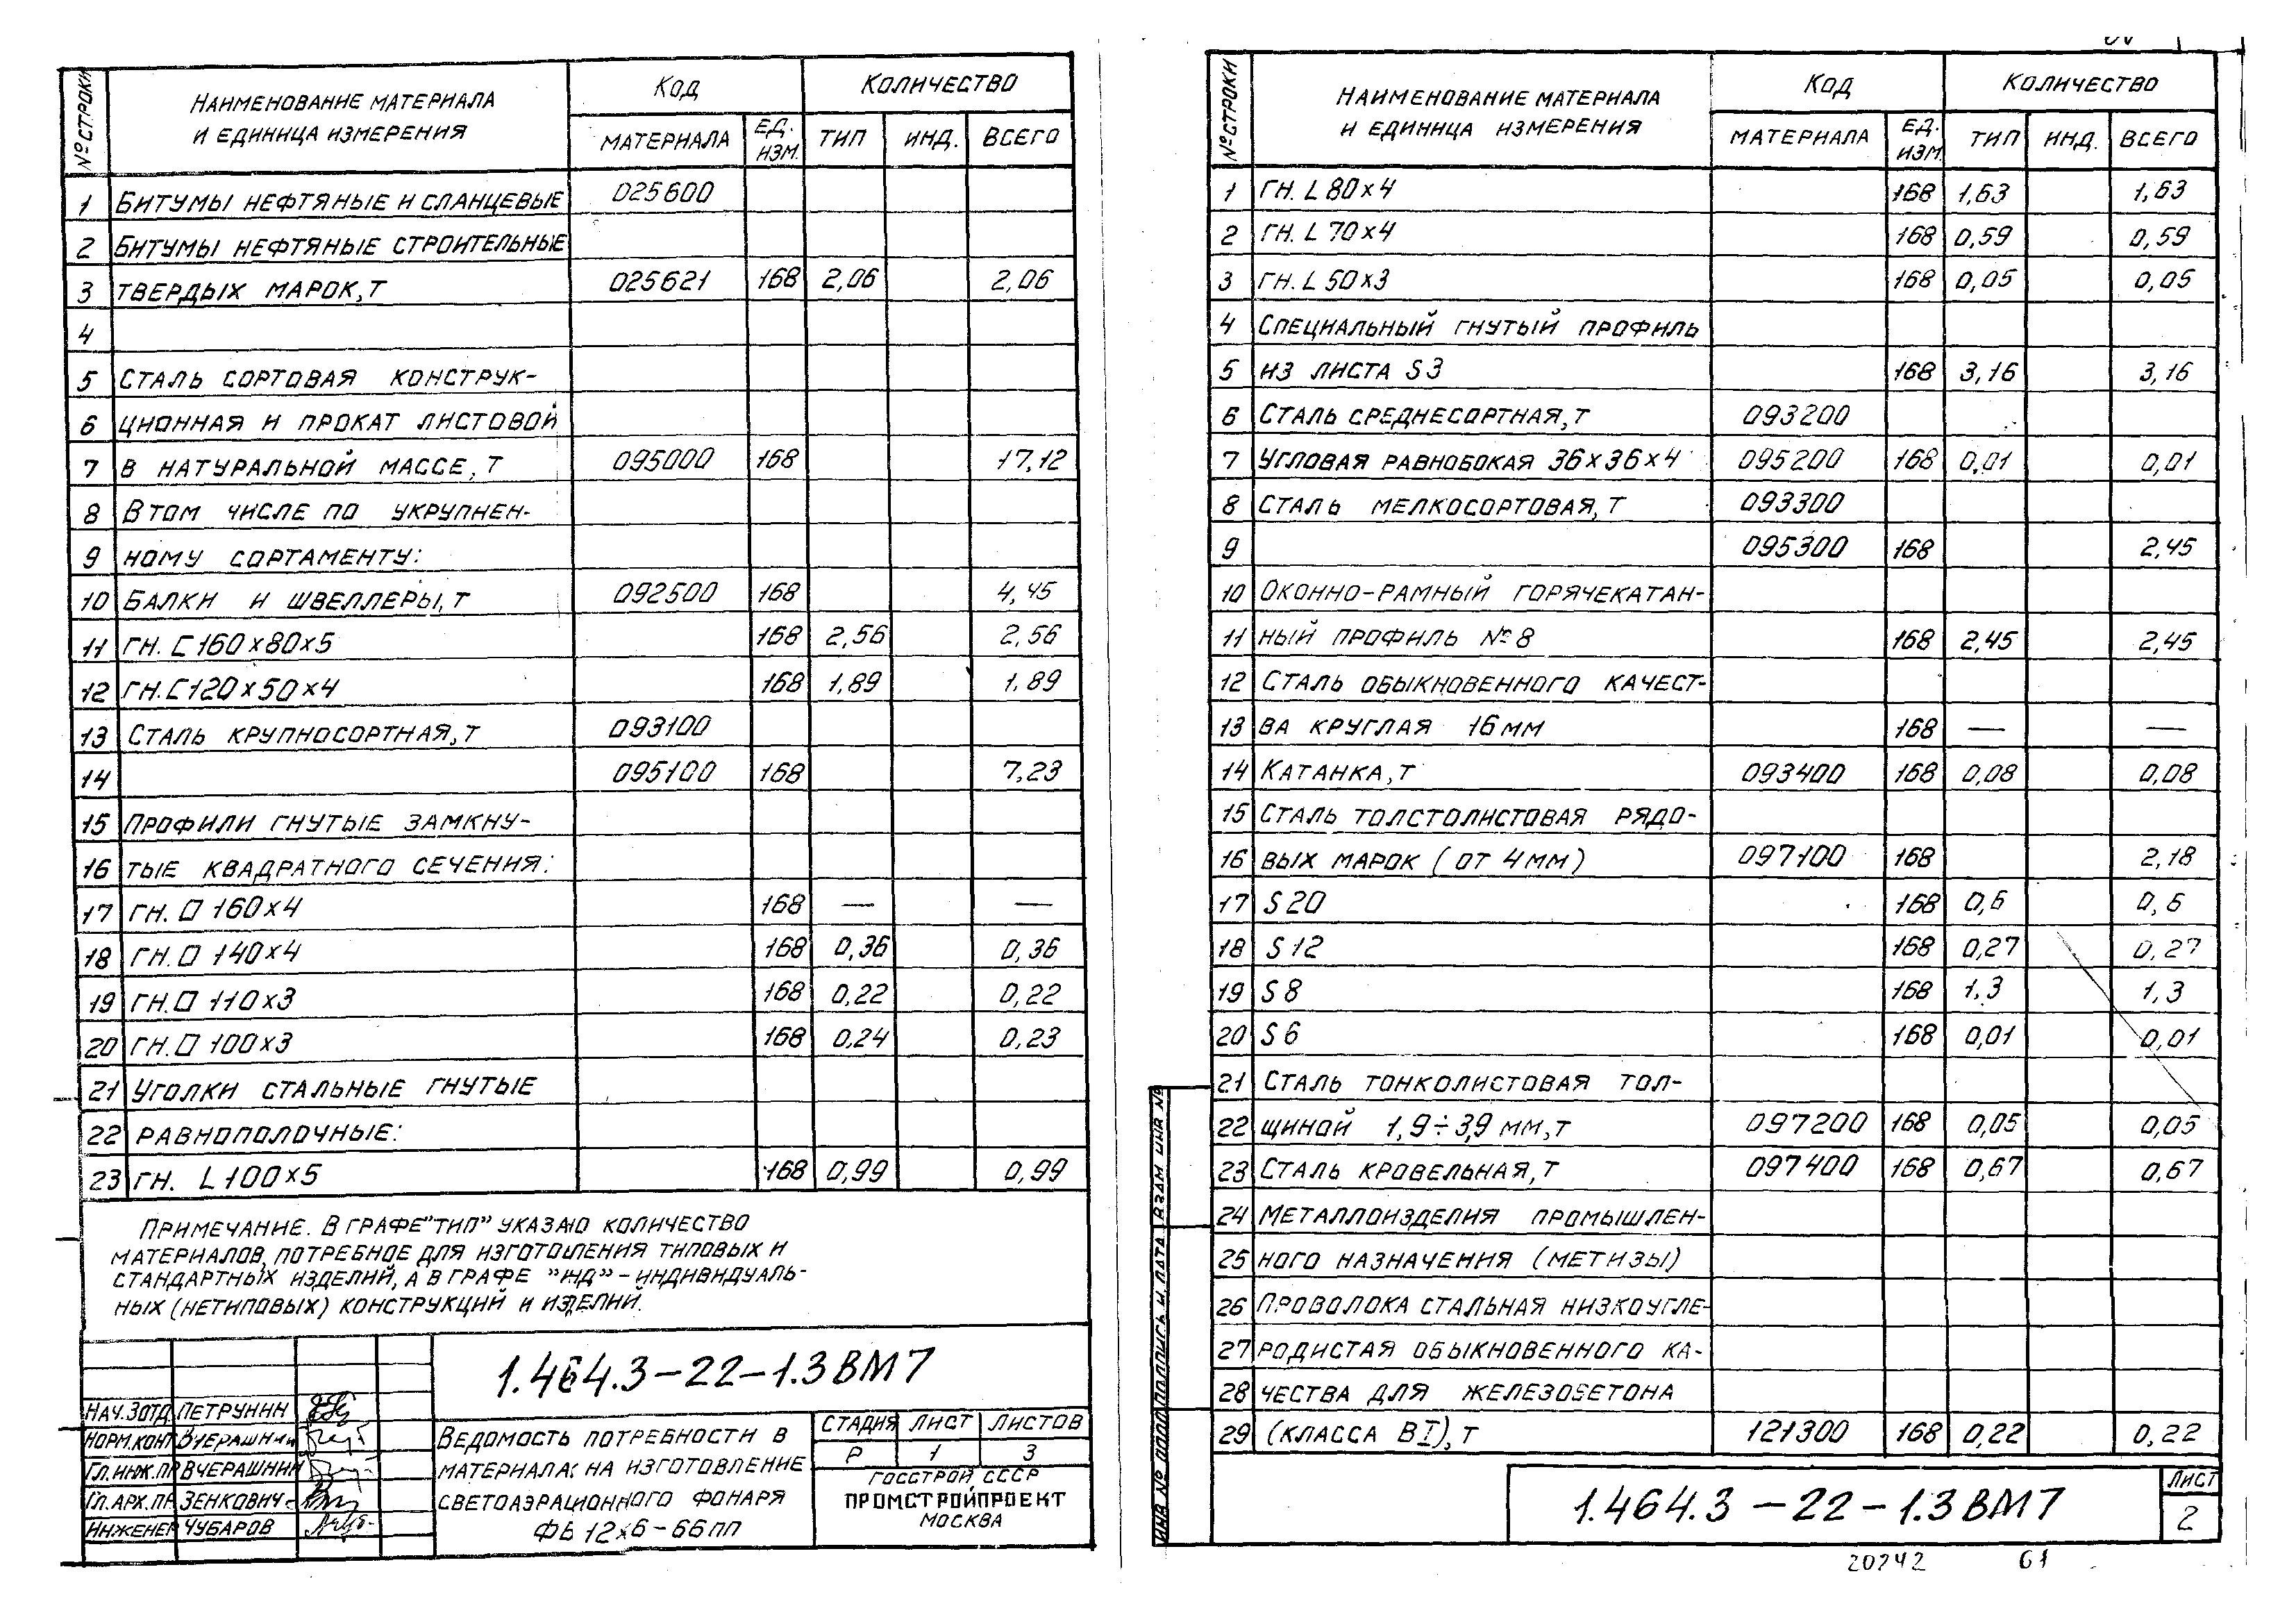 № СТРОКИ | НАИМЕНОВАНИЕ МАТЕРИАЛА | КОД | КОЛИЧЕСТВО
И ЕДИНИЦА ИЗМЕРЕНИЯ | МАТЕРИАЛА | ЕД. ИЗМ. | ТИП | ИНД. | ВСЕГО
1 БИТУМЫ НЕФТЯНЫЕ И СЛАНЦЕВЫЕ 025600
2 БИТУМЫ НЕФТЯНЫЕ СТРОИТЕЛЬНЫЕ
3 ТВЕРДЫХ МАРОК, Т 025621 168 2,06 2,06
4
5 СТАЛЬ СОРТОВАЯ КОНСТРУК-
6 ЦИОННАЯ И ПРОКАТ ЛИСТОВОЙ
7 В НАТУРАЛЬНОЙ МАССЕ, Т 095000 168 17,12
8 В ТОМ ЧИСЛЕ ПО УКРУПНЕН-
9 НОМУ СОРТАМЕНТУ:
10 БАЛКИ И ШВЕЛЛЕРЫ, Т 092500 168 4,45
11 ГН. [ 160×80×5 168 2,56 2,56
12 ГН. [ 120×50×4 168 1,89 1,89
13 СТАЛЬ КРУПНОСОРТНАЯ, Т 093100
14 095100 168 7,23
15 ПРОФИЛИ ГНУТЫЕ ЗАМКНУ-
16 ТЫЕ КВАДРАТНОГО СЕЧЕНИЯ:
17 ГН. □ 160×4 168 — —
18 ГН. □ 140×4 168 0,36 0,36
19 ГН. □ 110×3 168 0,22 0,22
20 ГН. □ 100×3 168 0,24 0,23
21 УГОЛКИ СТАЛЬНЫЕ ГНУТЫЕ
22 РАВНОПОЛОЧНЫЕ:
23 ГН. L 100×5 168 0,99 0,99
ПРИМЕЧАНИЕ. В ГРАФЕ "ТИП" УКАЗАНО КОЛИЧЕСТВО
МАТЕРИАЛОВ, ПОТРЕБНОЕ ДЛЯ ИЗГОТОВЛЕНИЯ ТИПОВЫХ И
СТАНДАРТНЫХ ИЗДЕЛИЙ, А В ГРАФЕ "ИНД" – ИНДИВИДУАЛЬ-
НЫХ (НЕТИПОВЫХ) КОНСТРУКЦИЙ И ИЗДЕЛИЙ.
1.464.3–22–1.3 ВМ7
НАЧ. ЗОТД. ПЕТРУНИН
НОРМ. КОНТ ВЧЕРАШНИН
ГЛ. ИНЖ. ПР ВЧЕРАШНИН
ГЛ. АРХ. ПР. ЗЕНКОВИЧ
ИНЖЕНЕР ЧУБАРОВ
ВЕДОМОСТЬ ПОТРЕБНОСТИ В
МАТЕРИАЛАХ НА ИЗГОТОВЛЕНИЕ
СВЕТОАЭРАЦИОННОГО ФОНАРЯ
ФБ 12×6–66ПП
СТАДИЯ ЛИСТ ЛИСТОВ
Р 1 3
ГОССТРОЙ СССР
ПРОМСТРОЙПРОЕКТ
МОСКВА
№ СТРОКИ | НАИМЕНОВАНИЕ МАТЕРИАЛА | КОД | КОЛИЧЕСТВО
И ЕДИНИЦА ИЗМЕРЕНИЯ | МАТЕРИАЛА | ЕД. ИЗМ. | ТИП | ИНД. | ВСЕГО
1 ГН. L 80×4 168 1,63 1,63
2 ГН. L 70×4 168 0,59 0,59
3 ГН. L 50×3 168 0,05 0,05
4 СПЕЦИАЛЬНЫЙ ГНУТЫЙ ПРОФИЛЬ
5 ИЗ ЛИСТА S3 168 3,16 3,16
6 СТАЛЬ СРЕДНЕСОРТНАЯ, Т 093200
7 УГЛОВАЯ РАВНОБОКАЯ 36×36×4 095200 168 0,01 0,01
8 СТАЛЬ МЕЛКОСОРТОВАЯ, Т 093300
9 095300 168 2,45
10 ОКОННО-РАМНЫЙ ГОРЯЧЕКАТАН-
11 НЫЙ ПРОФИЛЬ № 8 168 2,45 2,45
12 СТАЛЬ ОБЫКНОВЕННОГО КАЧЕСТ-
13 ВА КРУГЛАЯ 16 ММ 168 — —
14 КАТАНКА, Т 093400 168 0,08 0,08
15 СТАЛЬ ТОЛСТОЛИСТОВАЯ РЯДО-
16 ВЫХ МАРОК (ОТ 4 ММ) 097100 168 2,18
17 S 20 168 0,6 0,6
18 S 12 168 0,27 0,27
19 S 8 168 1,3 1,3
20 S 6 168 0,01 0,01
21 СТАЛЬ ТОНКОЛИСТОВАЯ ТОЛ-
22 ЩИНОЙ 1,9÷3,9 ММ, Т 097200 168 0,05 0,05
23 СТАЛЬ КРОВЕЛЬНАЯ, Т 097400 168 0,67 0,67
24 МЕТАЛЛОИЗДЕЛИЯ ПРОМЫШЛЕН-
25 НОГО НАЗНАЧЕНИЯ (МЕТИЗЫ)
26 ПРОВОЛОКА СТАЛЬНАЯ НИЗКОУГЛЕ-
27 РОДИСТАЯ ОБЫКНОВЕННОГО КА-
28 ЧЕСТВА ДЛЯ ЖЕЛЕЗОБЕТОНА
29 (КЛАССА ВI), Т 121300 168 0,22 0,22
ИНВ № ПОДЛ ПОДПИСЬ И ДАТА ВЗАМ ИНВ №
1.464.3 – 22 – 1.3 ВМ7
ЛИСТ
2
20242 61